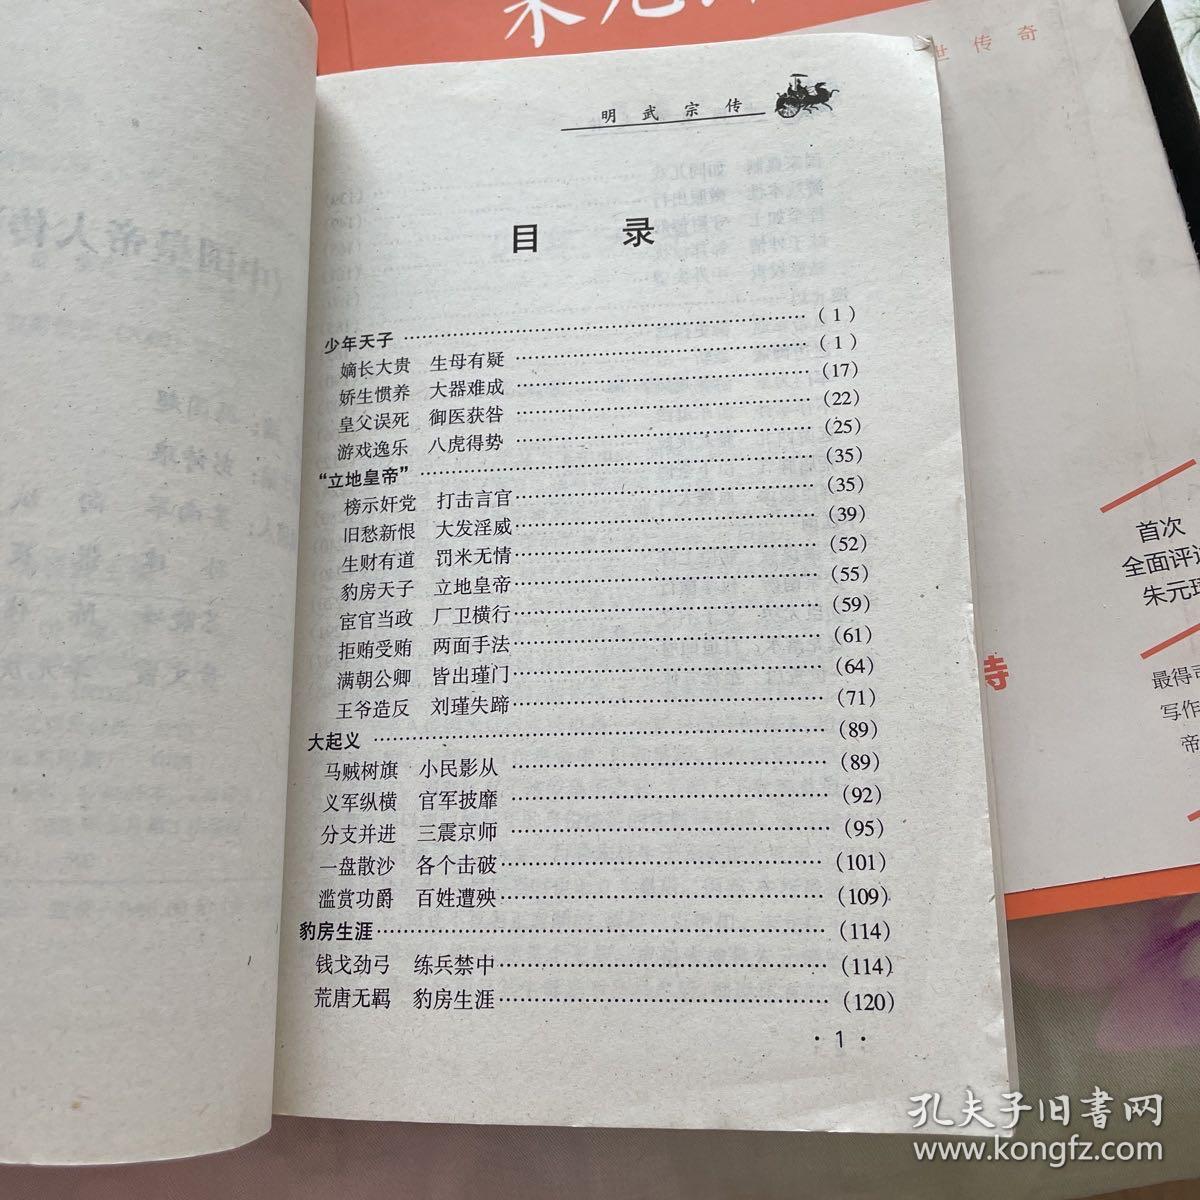 世传奇
明武宗传
目 录
少年天子………………………………(1)
嫡长大贵 生母有疑………………………(1)
娇生惯养 大器难成………………………(17)
皇父误死 御医获咎………………………(22)
游戏逸乐 八虎得势………………………(25)
“立地皇帝”………………………………(35)
榜示奸党 打击言官………………………(35)
旧愁新恨 大发淫威………………………(39)
生财有道 罚米无情………………………(52)
豹房天子 立地皇帝………………………(55)
宦官当政 厂卫横行………………………(59)
拒贿受贿 两面手法………………………(61)
满朝公卿 皆出瑾门………………………(64)
王爷造反 刘瑾失蹄………………………(71)
大起义………………………………(89)
马贼树旗 小民影从………………………(89)
义军纵横 官军披靡………………………(92)
分支并进 三震京师………………………(95)
一盘散沙 各个击破………………………(101)
滥赏功爵 百姓遭殃………………………(109)
豹房生涯………………………………(114)
钱戈劲弓 练兵禁中………………………(114)
荒唐无羁 豹房生涯………………………(120)
·1·
首次
全面评
朱元
最得
写作
帝
孔夫子旧书网
www.kongfz.com